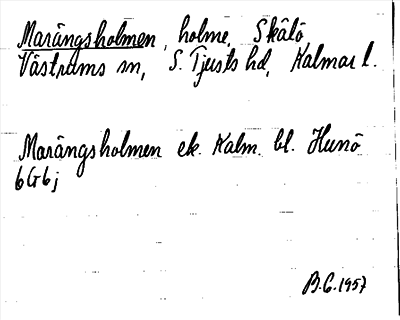 Marängsholmen, holme, Skälö
Västrums sn, S. Tjusts hd, Kalmar l.
Marängsholmen ek. Kalm. bl. Hunö
6G6j
B.G.1957